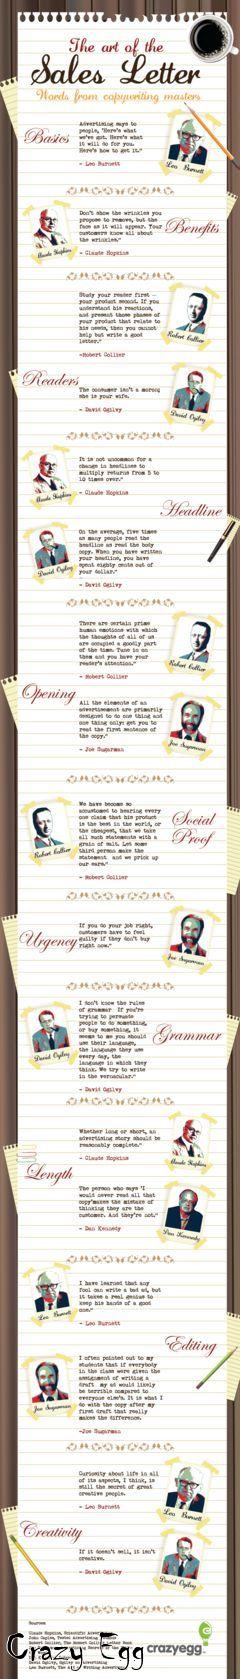 The art of the
Sales Letter
Words from copywriting masters
Basics
Advertising says to
people, 'Here's what
we've got. Here's what
it will do for you.
Here's how to get it."
- Leo Burnett
Leo Burnett
Benefits
Don't show the wrinkles you
propose to remove, but the
face as it will appear. Your
customers know all about
the wrinkles."
- Claude Hopkins
Claude Hopkins
Study your reader first -
your product second. If you
understand his reactions,
and present those phases of
your product that relate to
his needs, then you cannot
help but write a good
letter."
-Robert Collier
Robert Collier
Readers
The consumer isn't a moron;
she is your wife.
- David Ogilvy
David Ogilvy
It is not uncommon for a
change in headlines to
multiply returns from 5 to
10 times over."
- Claude Hopkins
Claude Hopkins
Headline
On the average, five times
as many people read the
headline as read the body
copy. When you have written
your headline, you have
spent eighty cents out of
your dollar."
- David Ogilvy
David Ogilvy
There are certain prime
human emotions with which
the thoughts of all of us
are occupied a goodly part
of the time. Tune in on
them and you have your
reader's attention."
- Robert Collier
Robert Collier
Opening
All the elements of an
advertisement are primarily
designed to do one thing and
one thing only: get you to
read the first sentence of
the copy."
- Joe Sugarman
Joe Sugarman
We have become so
accustomed to hearing every
one claim that his product
is the best in the world, or
the cheapest, that we take
all such statements with a
grain of salt. Let some
third person make the
statement and we prick up
our ears."
- Robert Collier
Robert Collier
Social
Proof
Urgency
If you do your job right,
customers have to feel
guilty if they don't buy
right now."
Joe Sugarman
I don't know the rules
of grammar If you're
trying to persuade
people to do something,
or buy something, it
seems to me you should
use their language,
the language they use
every day, the
language in which they
think. We try to write
in the vernacular."
- David Ogilvy
David Ogilvy
Grammar
Whether long or short, an
advertising story should be
reasonably complete."
- Claude Hopkins
Claude Hopkins
Length
The person who says 'I
would never read all that
copy'makes the mistake of
thinking they are the
customer. And they're not."
- Dan Kennedy
Dan Kennedy
I have learned that any
fool can write a bad ad, but
it takes a real genius to
keep his hands off a good
one."
- Leo Burnett
Leo Burnett
Editing
I often pointed out to my
students that if everybody
in the class were given the
assignment of writing a
draft my ad would likely
be terrible compared to
everyone else's. It is what I
do with the copy after my
first draft that really
makes the difference.
-Joe Sugarman
Joe Sugarman
Curiosity about life in all
of its aspects, I think, is
still the secret of great
creative people.
- Leo Burnett
Leo Burnett
Creativity
If it doesn't sell, it isn't
creative.
- David Ogilvy
David Ogilvy
Sources
crazyegg
Crazy Egg